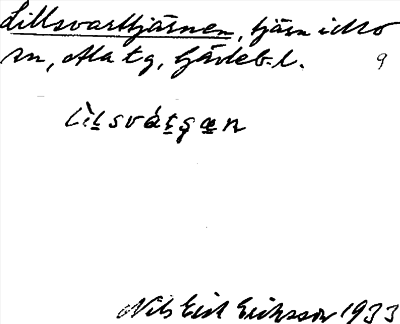 Lillsvarttjärnen, tjärn i Mo
sn, Ala tg, Gävleb. l. 9
lìl̠svát̠gæ̠n
Nils Erik Eriksson 1933